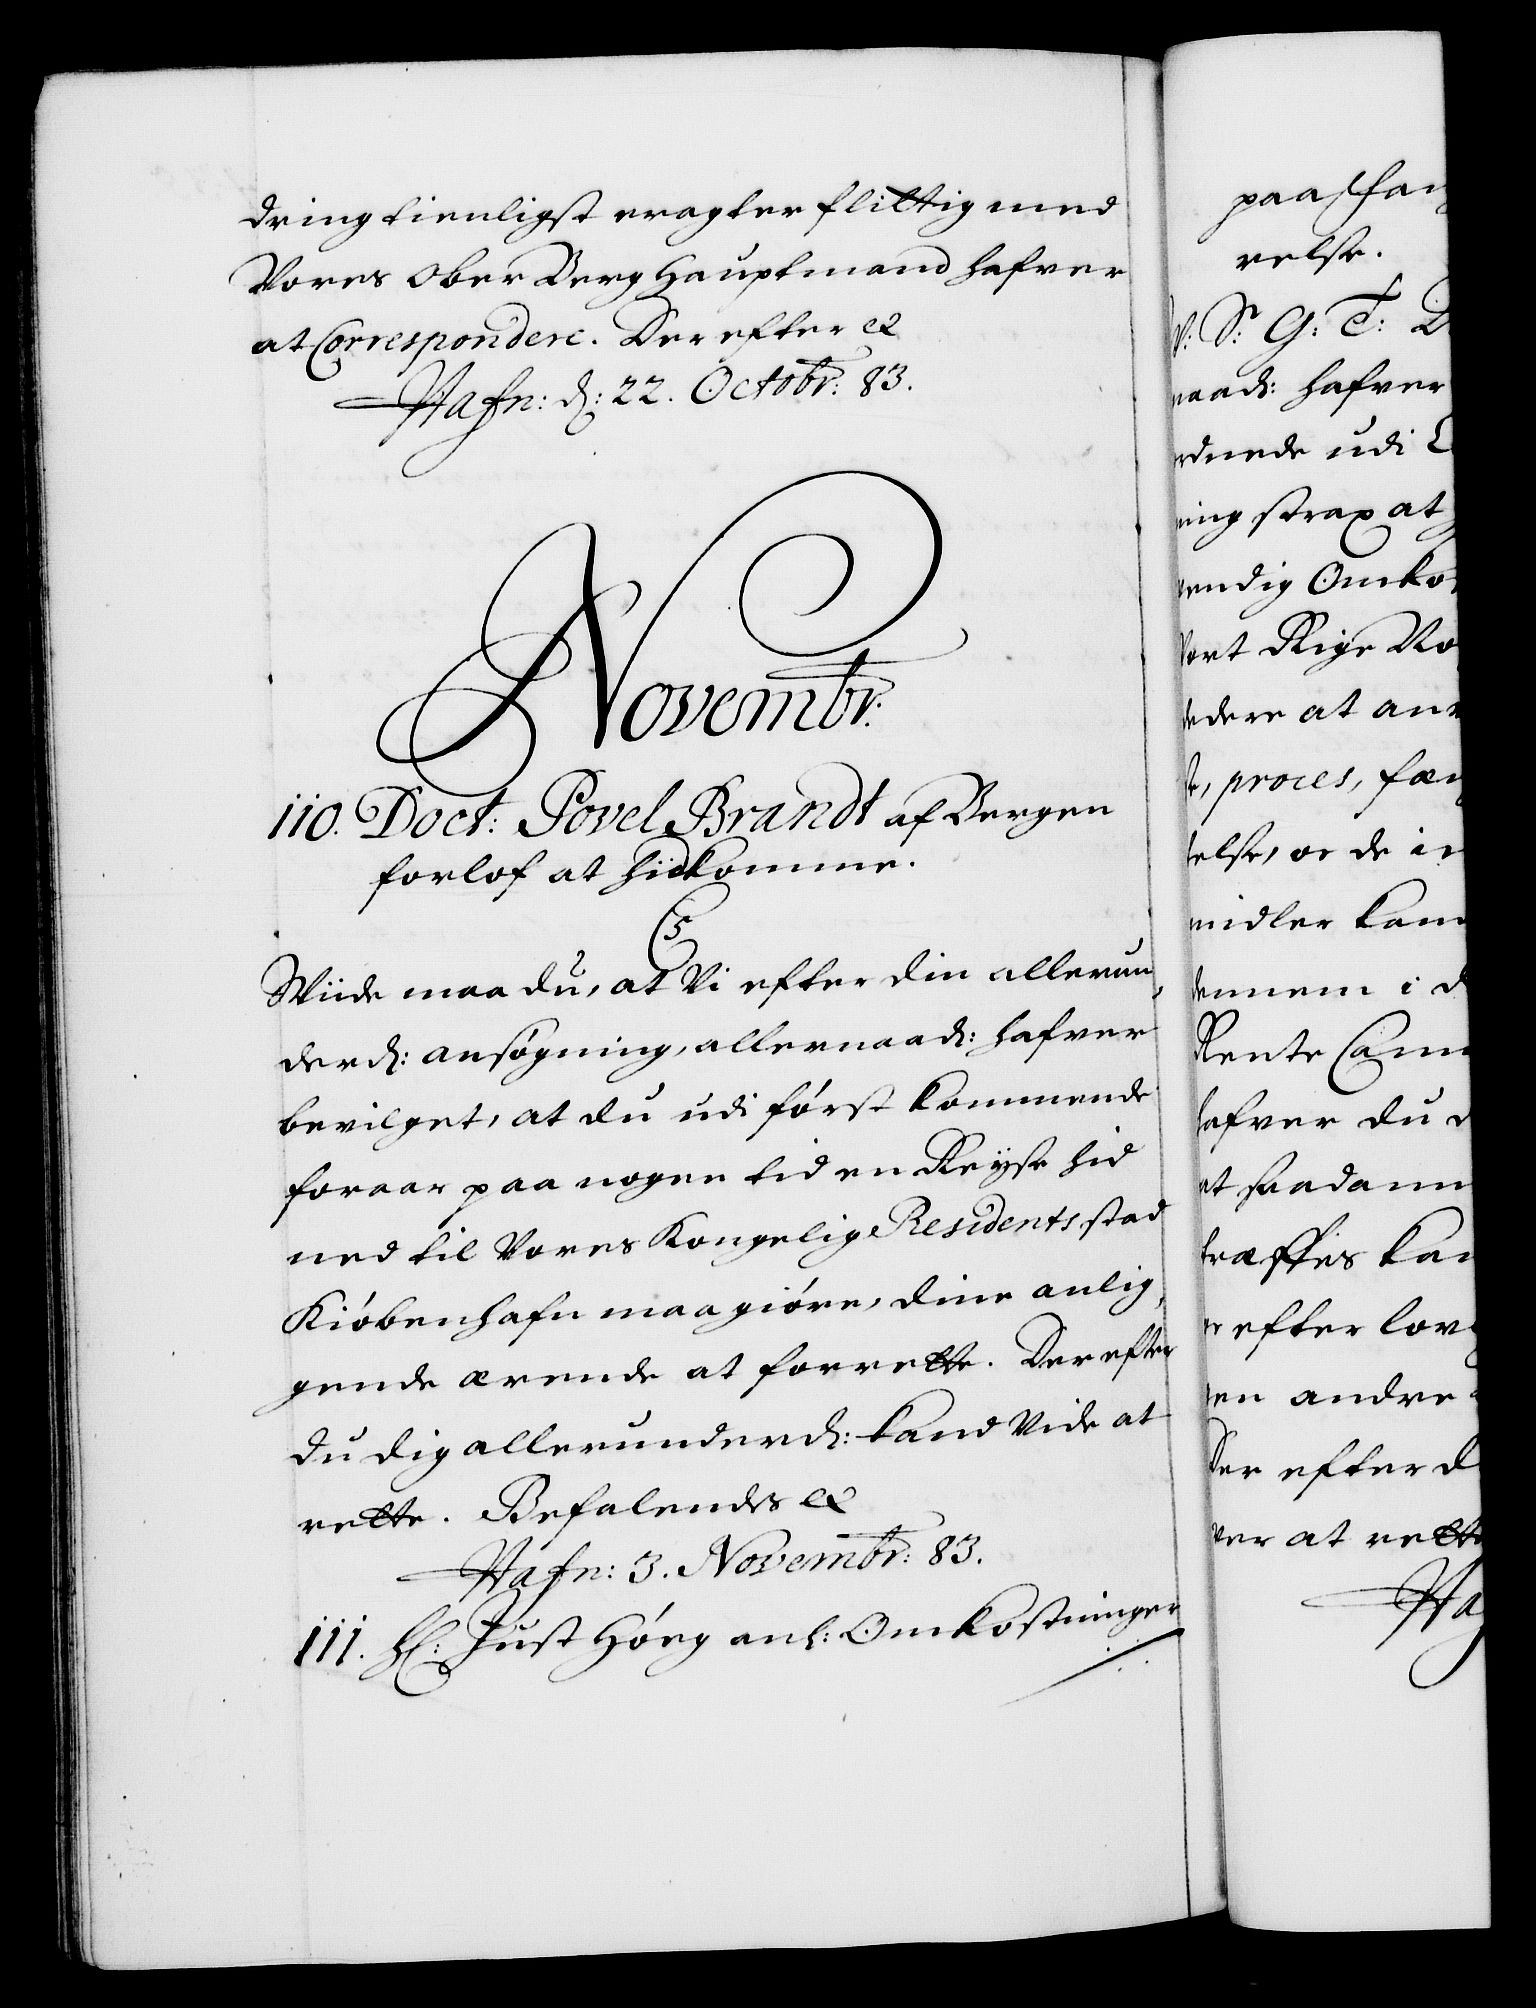 dring tienligst eragter flittig med
Vores Ober Berg Hauptmand hafver
at Correspondere. Der efter &
Hafn: d: 22. Octobr: 83.
Novembr:
110. Doct: Povel Brandt af Bergen
forlof at hidkomme.
C5
Wiide maa du, at Vi efter din allerun,
derd: ansøgning, allernaad: hafver
bevilget, at du udi først kommende
foraar paa nogen tid en Reyse hid
ned til Vores Kongelig Residents stad
Kiøbenhafn maa giøre, dine anlig,
gende ærende at forrette. Der efter
du dig allerunderd: kand vide at
rette. Befalendes &
Hafn: 3. Novembr: 83.
111. H: Just Høeg anl: Omkostninger
paa
relse.
S: G: T:
naad: hafver
rdnede udi
ning strax at
vendig Omko
Vort Rige No
dere at an
proces, fæn
telse, or de in
midler kan
dennem i d
Rente Cam
hafver du
at saadann
træffes kan
efter lov
en andre
Der efter d
ver at rette
Ha